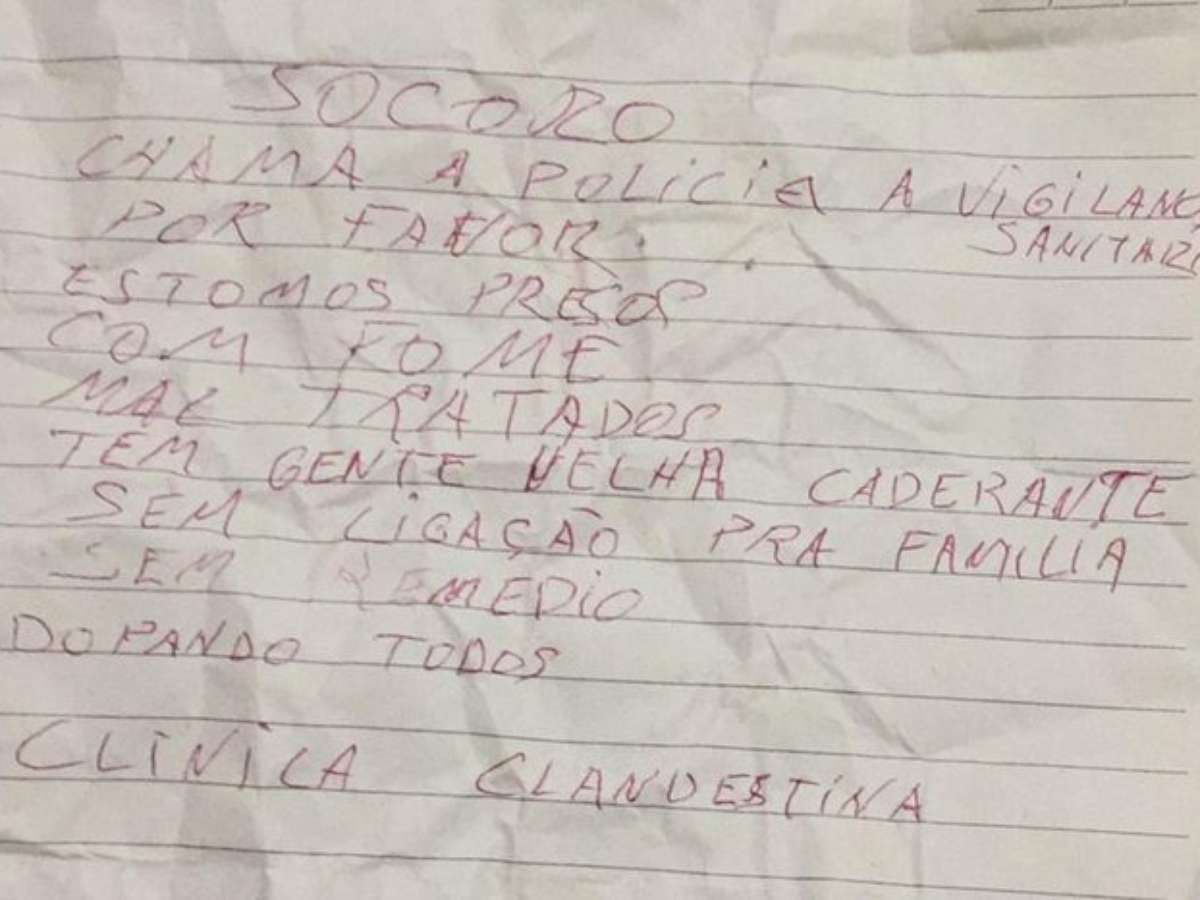 SOCORO
CHAMA A POLICIA A VIGILANC
SANITARI
POR FAVOR.
ESTOMOS PRESOS
COM FOME
MAL TRATADOS
TEM GENTE VELHA CADERANTE
SEM LIGAÇÃO PRA FAMILIA
SEM REMEDIO
DOPANDO TODOS
CLINICA CLANDESTINA